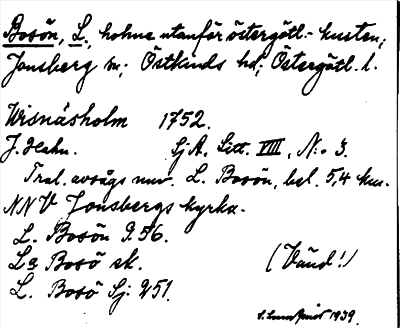 Bosön, L., holme utanför östergötl.-kusten;
Jonsberg sn; Östkinds hd; Östergötl. l.
Wisnäsholm 1752.
J. Hahn. SjA, Litt. VIII, N:o 3.
Trol. avsågs nuv. L. Bosön, bel. 5,4 km.
NNV Jonsbergs kyrka.
L. Bosön G.56.
La Bosö sk.
(Vänd!)
L. Bosö Sj: 251.
1939.